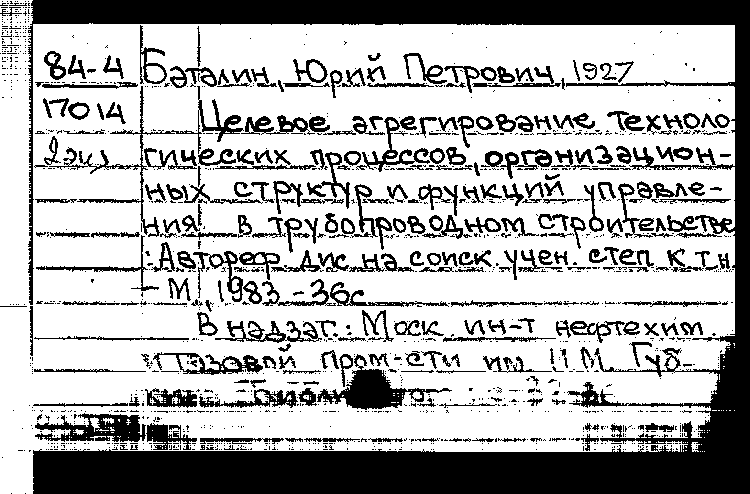 84-4 Баталин, Юрий Петрович, 1927
17014 Целевое агрегирование техноло-
2 экз гических процессов, организацион-
ных структур и функций управле-
ния в трубопроводном строительстве
: Автореф. дис на соиск. учен. степ к т.н
– М., 1983 - 36с
В надзаг.: Моск. ин-т нефтехим.
и газовой пром-сти им. И.М. Губ-
кина Библи